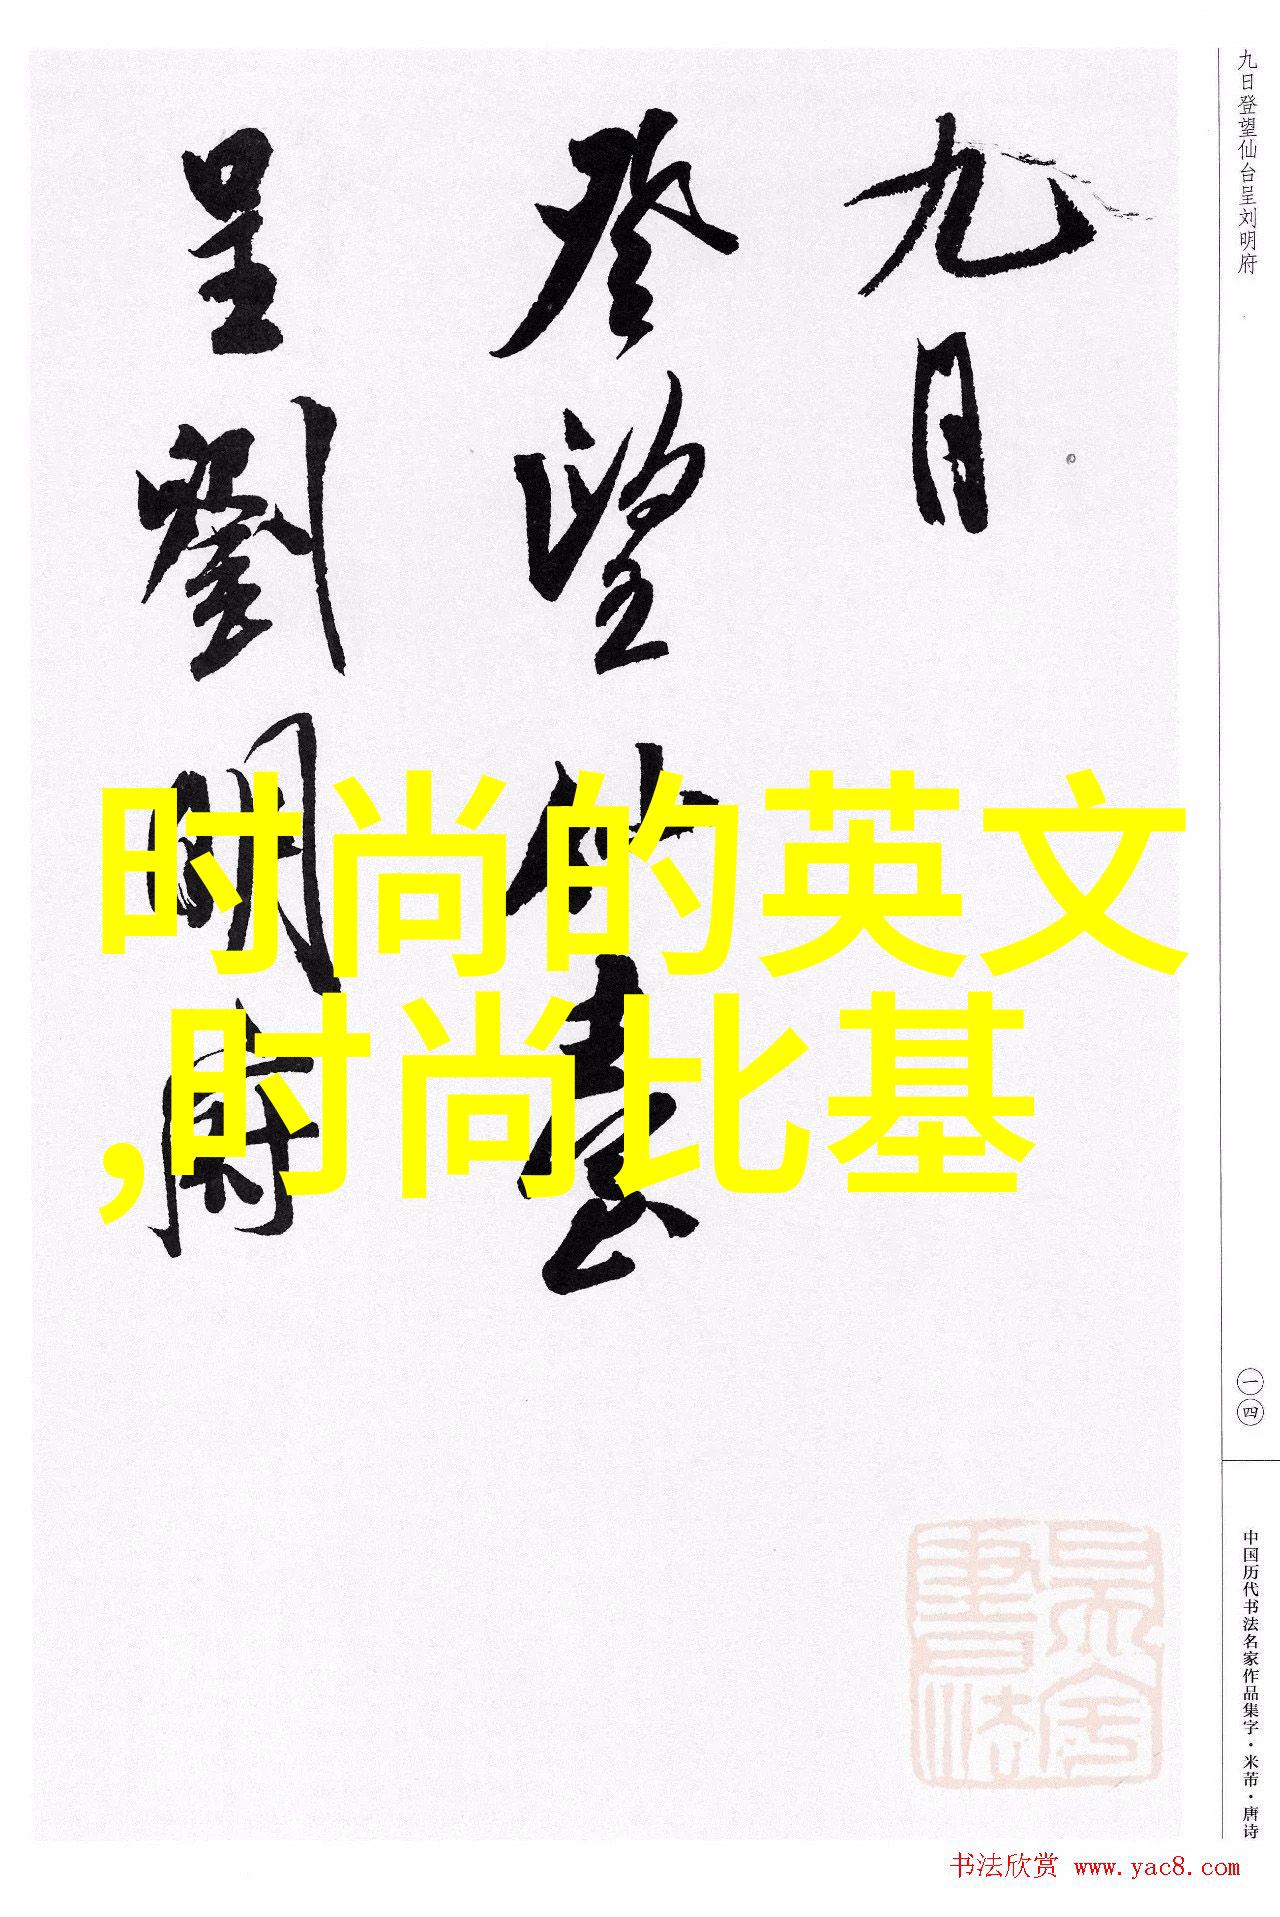 九日
登望仙臺
呈劉明府
时尚的英文
,时尚比基
九日登望仙台呈刘明府
一四
中国历代书法名家作品集字·米芾·唐诗
书法欣赏 www.yac8.com